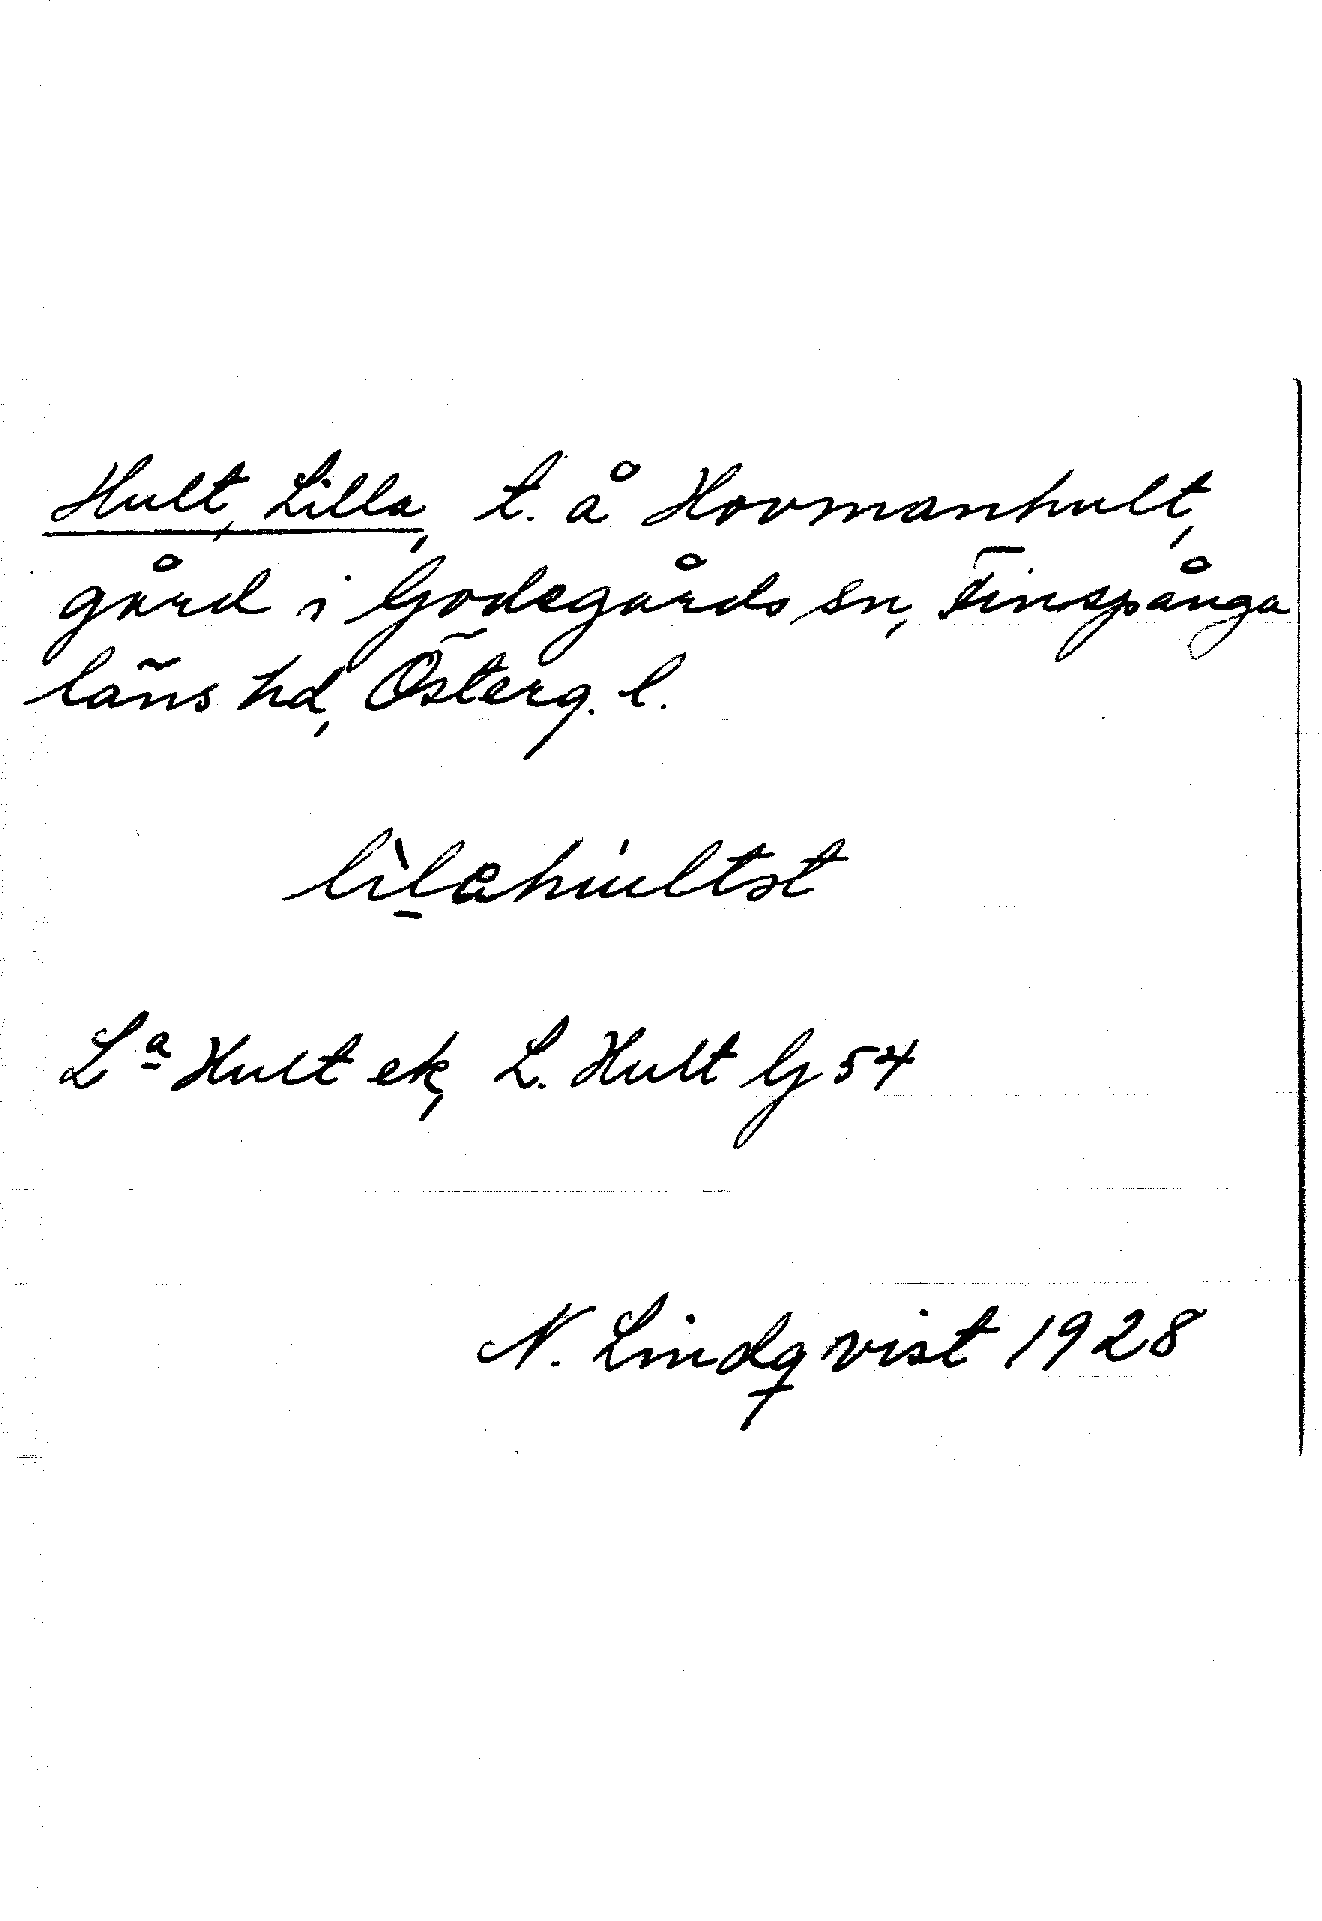 Hult, Lilla, t. å Hovmanhult,
gård i Godegårds sn, Finspånga
läns hd, Österg. l.
lìlahúltst
Lª Hult ek, L. Hult G 54
N. Lindqvist 1928